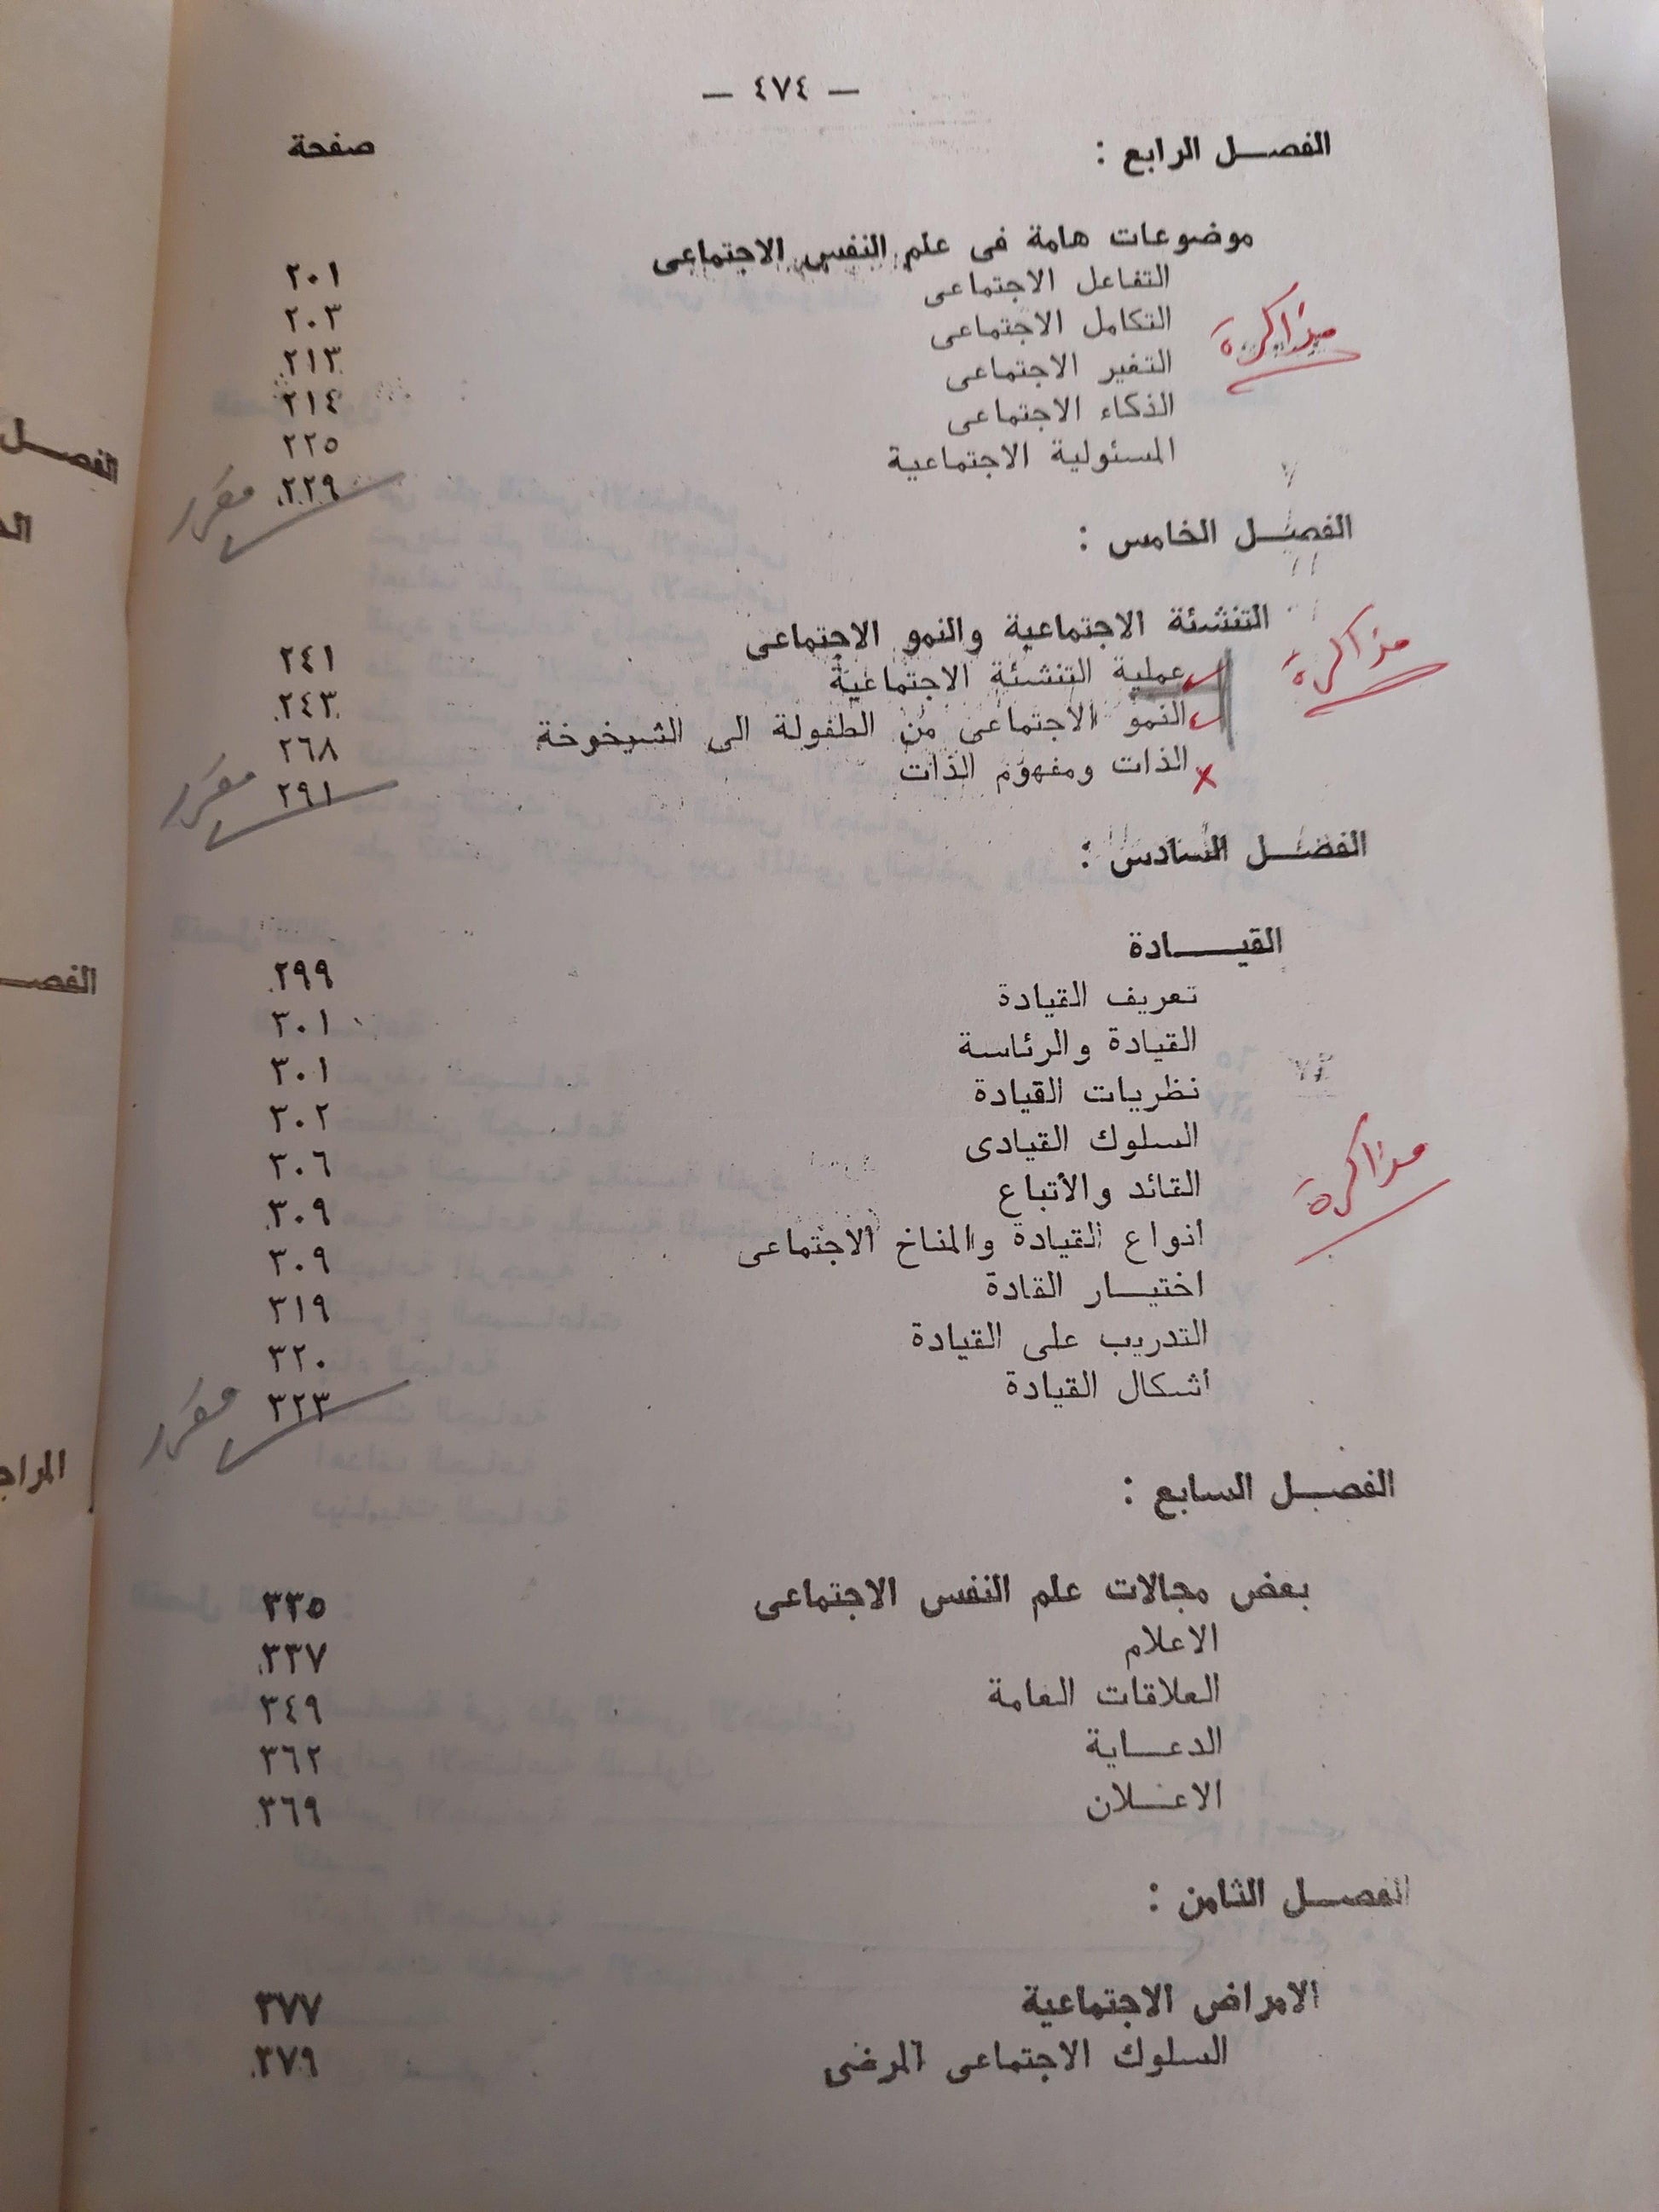 — ٤٧٤ —
صفحة
الفصل الرابع :
موضوعات هامة فى علم النفس الاجتماعى ٢٠١
التفاعل الاجتماعى ٢٠٣
التكامل الاجتماعى ٢١٣
مذاكرة
التغير الاجتماعى ٢١٤
الذكاء الاجتماعى ٢٢٥
المسئولية الاجتماعية ٢٢٩
مقرر
الفصل الخامس :
التنشئة الاجتماعية والنمو الاجتماعى ٢٤١
مذاكرة
عملية التنشئة الاجتماعية ٢٤٣
النمو الاجتماعى من الطفولة الى الشيخوخة ٢٦٨
الذات ومفهوم الذات ٢٩١
مقرر
الفصل السادس :
القيادة ٢٩٩
تعريف القيادة ٣٠١
القيادة والرئاسة ٣٠١
نظريات القيادة ٣٠٢
السلوك القيادى ٣٠٦
مذاكرة
القائد والأتباع ٣٠٩
أنواع القيادة والمناخ الاجتماعى ٣٠٩
اختيار القادة ٣١٩
التدريب على القيادة ٣٢٠
أشكال القيادة ٣٢٣
مقرر
الفصل السابع :
بعض مجالات علم النفس الاجتماعى ٣٣٥
الاعلام ٣٣٧
العلاقات العامة ٣٤٩
الدعاية ٣٦٢
الاعلان ٣٦٩
الفصل الثامن :
الامراض الاجتماعية ٣٧٧
السلوك الاجتماعى المرضى ٣٧٩